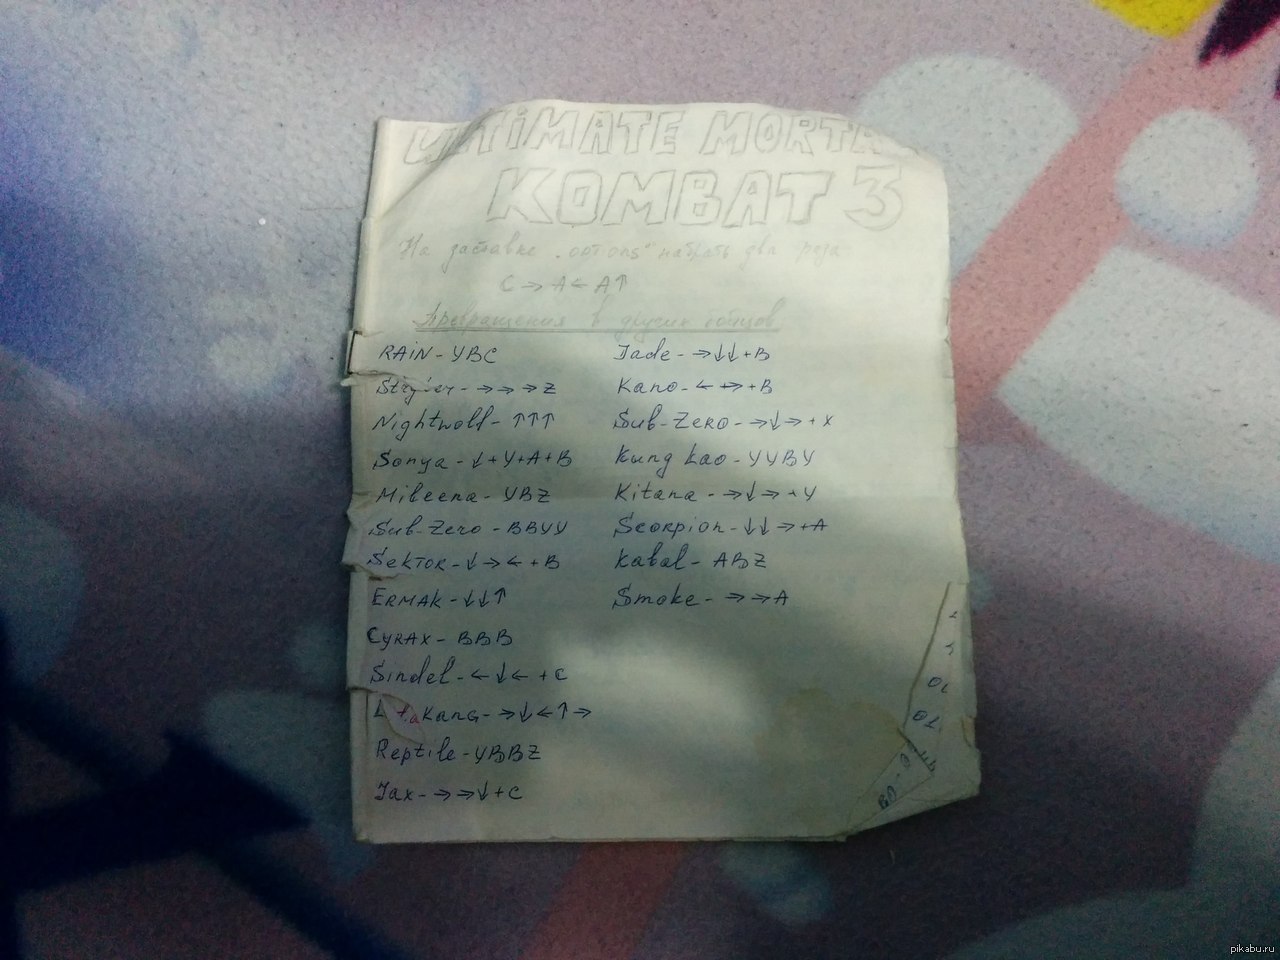 ULTIMATE MORTAL
KOMBAT 3
На заставке „options" набрать два раза
C → A ← A ↑
Превращения в других бойцов
RAIN - YBC
Stryker - → → → Z
Nightwolf - ↑↑↑
Sonya - ↓ + Y + A + B
Mileena - YBZ
Sub-Zero - BBYY
SEKTOR - ↓ → ← + B
ERMAK - ↓↓↑
CYRAX - BBB
Sindel - ← ↓ ← + C
Kang - → ↓ ← ↑ →
Reptile - YBBZ
Jax - → → ↓ + C
Jade - → ↓↓ + B
Kano - ← → + B
Sub-ZERO - → ↓ → + X
Kung Lao - YYBY
Kitana - → ↓ → + Y
Scorpion - ↓↓ → + A
Kabal - ABZ
Smoke - → → A
pikabu.ru